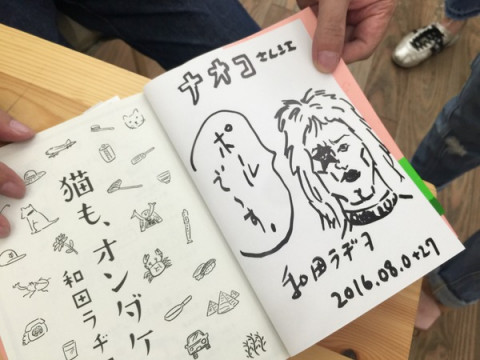 ナオコさんえ
ポール
です。
和田ラヂヲ
2016.08.27
猫も、オンダケ
和田ラヂ